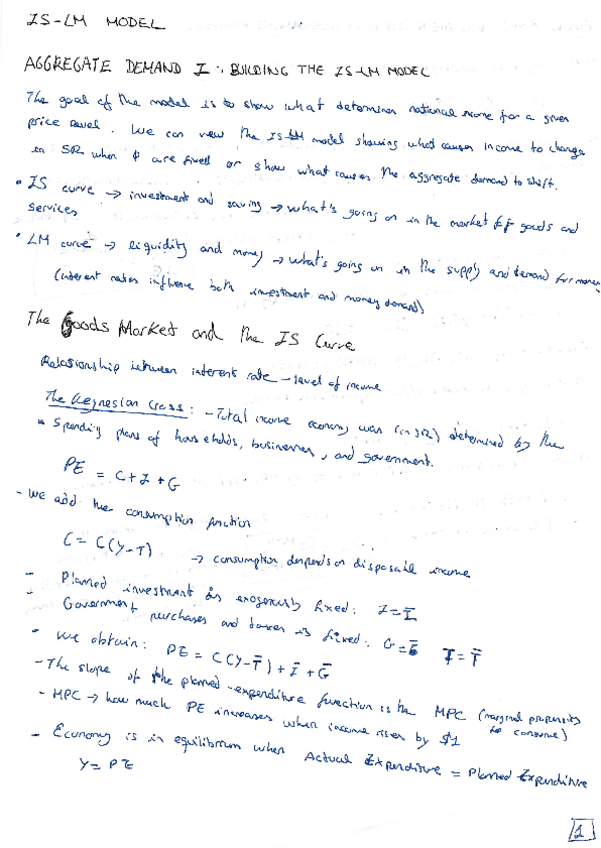 IS-LM MODEL
AGGREGATE DEMAND I: BUILDING THE IS-LM MODEL
The goal of the model is to show what determines national income for a given
price level. We can view the IS-LM model showing what causes income to change
in SR when P are fixed or show what causes the aggregate demand to shift.
• IS curve → investment and saving → what's going on in the market for goods and
services
• LM curve → liquidity and money → what's going on in the supply and demand for money
(interest rates influence both investment and money demand)
The Goods Market and the IS Curve
Relationship between interest rate – level of income
The Keynesian Cross: - Total income economy was (in SR) determined by the
spending plans of households, businesses, and government.
PE = C+I+G
- We add the consumption function
C = C(Y-T) → consumption depends on disposable income
- Planned investment is exogenously fixed: I = Ī
- Government purchases and taxes is fixed: G = Ḡ T = T̄
- We obtain: PE = C(Y-T̄) + Ī + Ḡ
- The slope of the planned-expenditure function is the MPC (marginal propensity
to consume)
- MPC → how much PE increases when income rises by $1
- Economy is in equilibrium when Actual Expenditure = Planned Expenditure
Y = PE
1